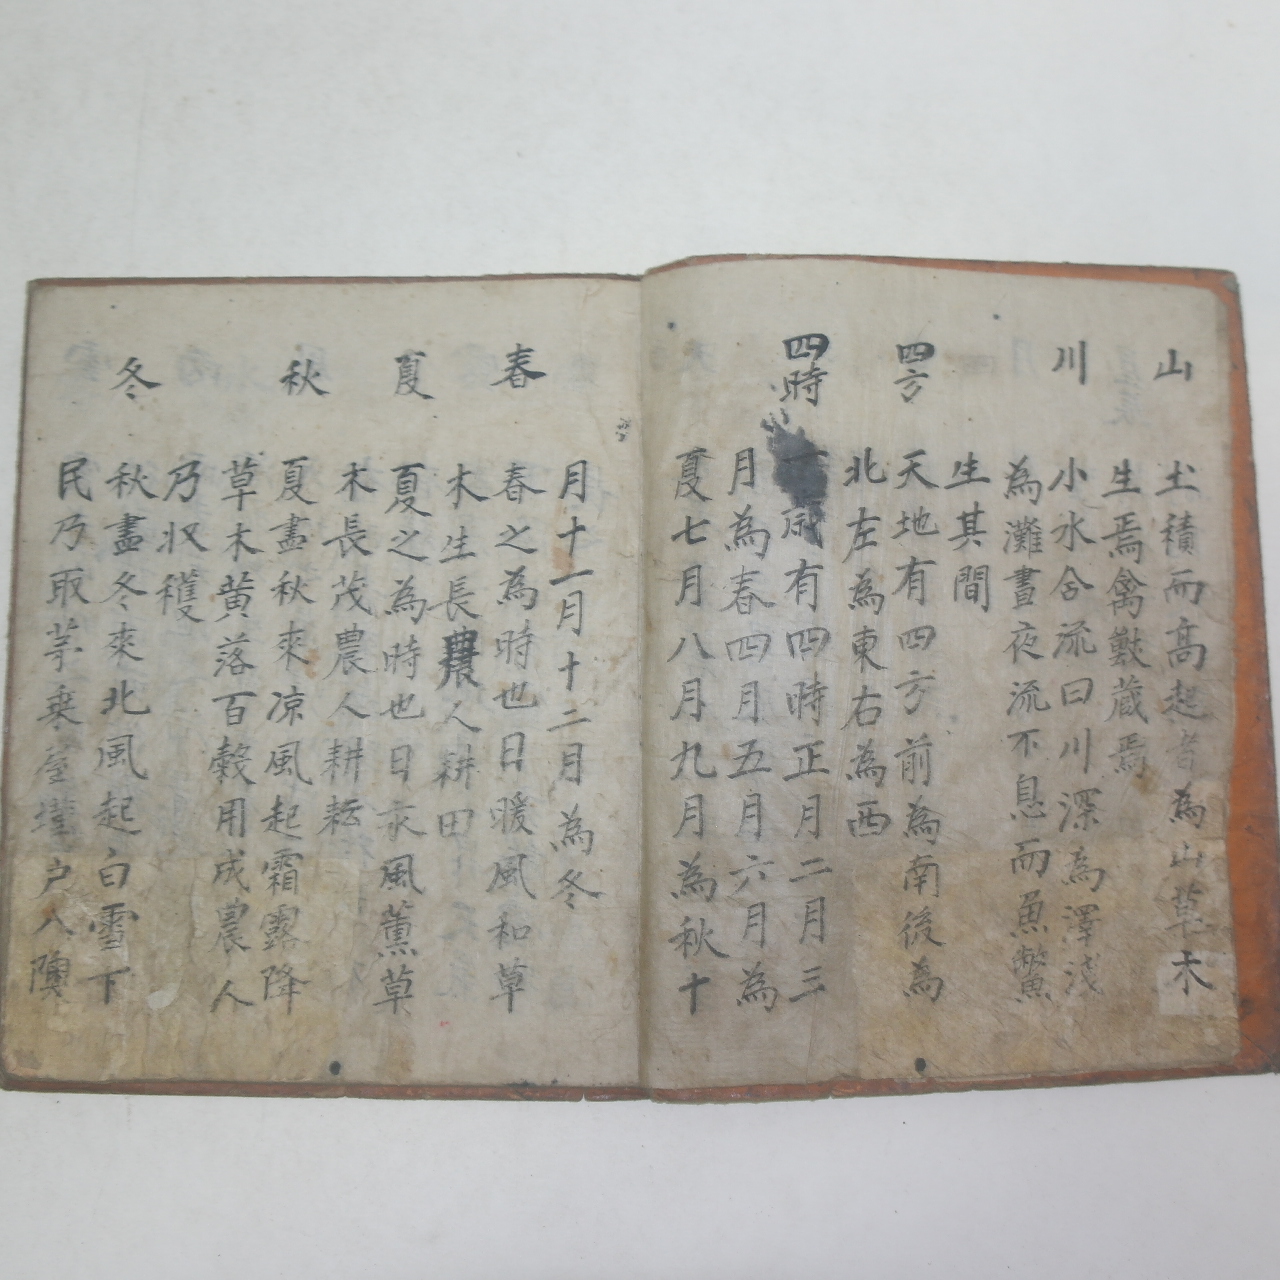 山
土積而高起者為山草木
生焉禽獸蔵焉
川
小水合流曰川深為澤淺
為灘晝夜流不息而魚鱉
生其間
四方
天地有四方前為南後為
北左為東右為西
四時
一歲有四時正月二月三
月為春四月五月六月為
夏七月八月九月為秋十
月十一月十二月為冬
春
春之為時也日暖風和草
木生長農人耕田
夏
夏之為時也日永風薰草
木長茂農人耕耘
秋
夏盡秋來凉風起霜露降
草木黄落百穀用成農人
乃収穫
冬
秋盡冬來北風起白雪下
民乃取茅乗屋墐户入隩